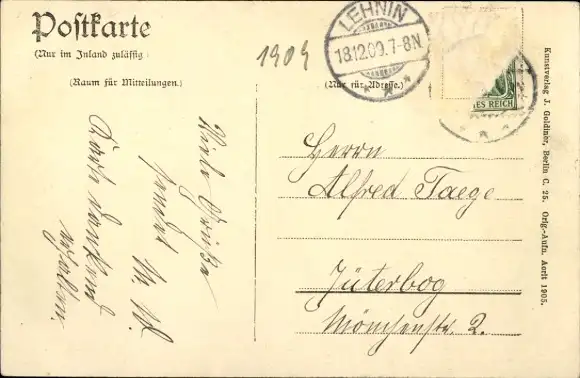 Postkarte
(Nur im Inland zulässig
(Raum für Mitteilungen.)
1909
LEHNIN
18.12.09.7-8N
(Nur für Adresse.)
ES REICH
Viele Grüße
sendet
Karte dankend
erhalten.
Herrn
Alfred Taege
Jüterbog
Mönchenstr. 2.
Kunstverlag J. Goldiner, Berlin C. 25. Orig.-Aufn. April 1905.